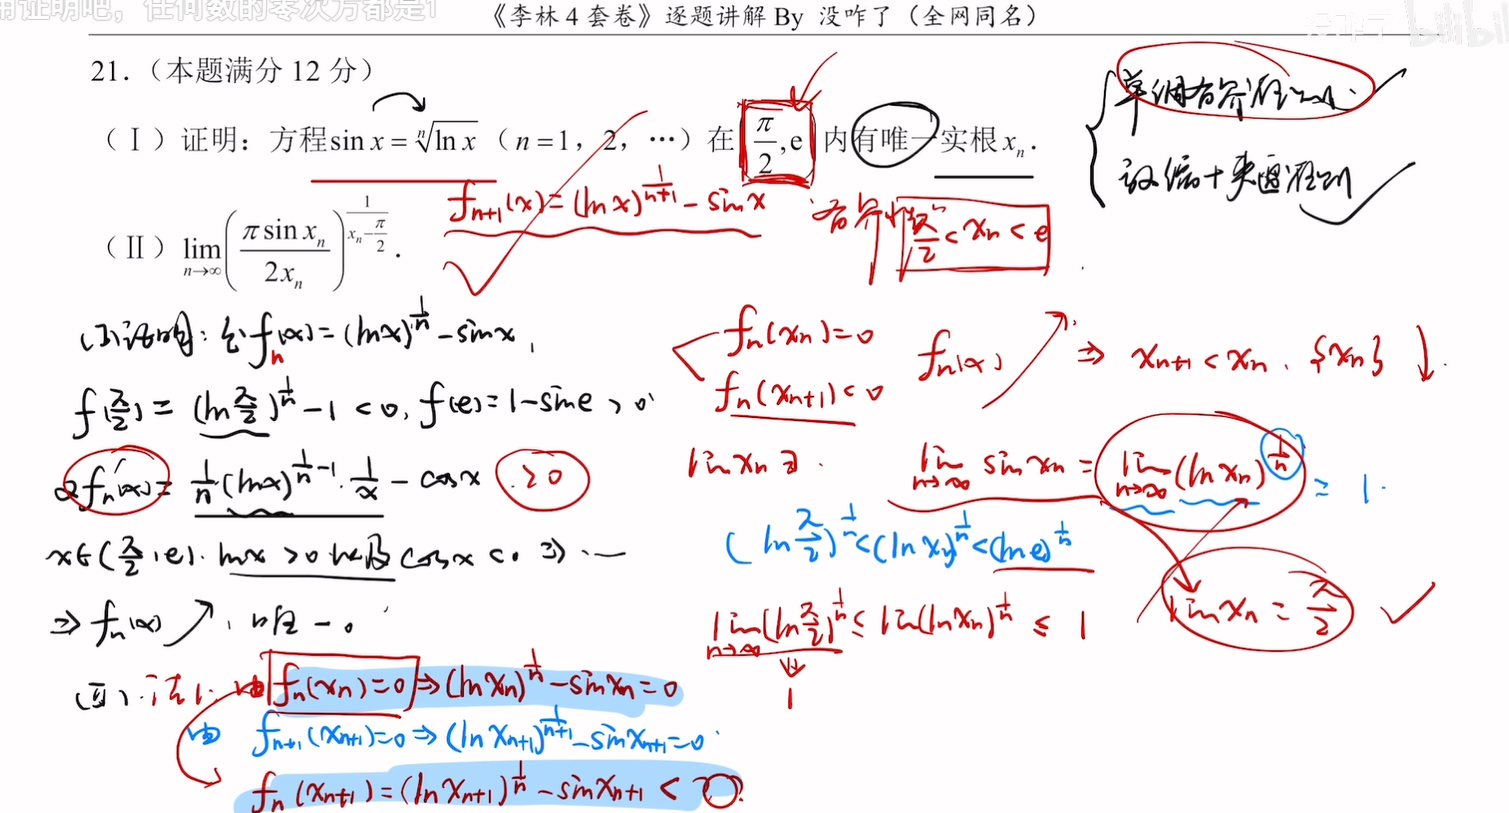 用证明吧，任何数的零次方都是1
《李林4套卷》逐题讲解 By 没咋了（全网同名）
bilibili
21.（本题满分 12 分）
（Ⅰ）证明：方程 sin x = ⁿ√(ln x)（n = 1，2，⋯）在 (π/2, e) 内有唯一实根 xₙ.
（Ⅱ）lim_{n→∞} (π sin xₙ / 2xₙ)^{1/(xₙ − π/2)}.
单调有界准则
夹逼准则
fₙ₊₁(x) = (ln x)^{1/(n+1)} − sin x
有界性
π/2 < xₙ < e
(Ⅰ) 证明：令 fₙ(x) = (ln x)^{1/n} − sin x,
f(π/2) = (ln π/2)^{1/n} − 1 < 0, f(e) = 1 − sin e > 0
fₙ'(x) = 1/n (ln x)^{1/n − 1} · 1/x − cos x > 0
x ∈ (π/2, e). ln x > 0 以及 cos x < 0 ⇒ ⋯
⇒ fₙ(x) ↗, 唯一.
(Ⅱ). 法1. 由 fₙ(xₙ) = 0 ⇒ (ln xₙ)^{1/n} − sin xₙ = 0
由 fₙ₊₁(xₙ₊₁) = 0 ⇒ (ln xₙ₊₁)^{1/(n+1)} − sin xₙ₊₁ = 0
fₙ(xₙ₊₁) = (ln xₙ₊₁)^{1/n} − sin xₙ₊₁ < 0
fₙ(xₙ) = 0
fₙ(xₙ₊₁) < 0
fₙ(x) ↗ ⇒ xₙ₊₁ < xₙ, {xₙ} ↓.
lim xₙ ∃.
lim_{n→∞} sin xₙ = lim_{n→∞} (ln xₙ)^{1/n} = 1.
(ln π/2)^{1/n} < (ln xₙ)^{1/n} < (ln e)^{1/n}
lim_{n→∞} (ln π/2)^{1/n} ≤ lim (ln xₙ)^{1/n} ≤ 1
⇓
1
lim xₙ = π/2